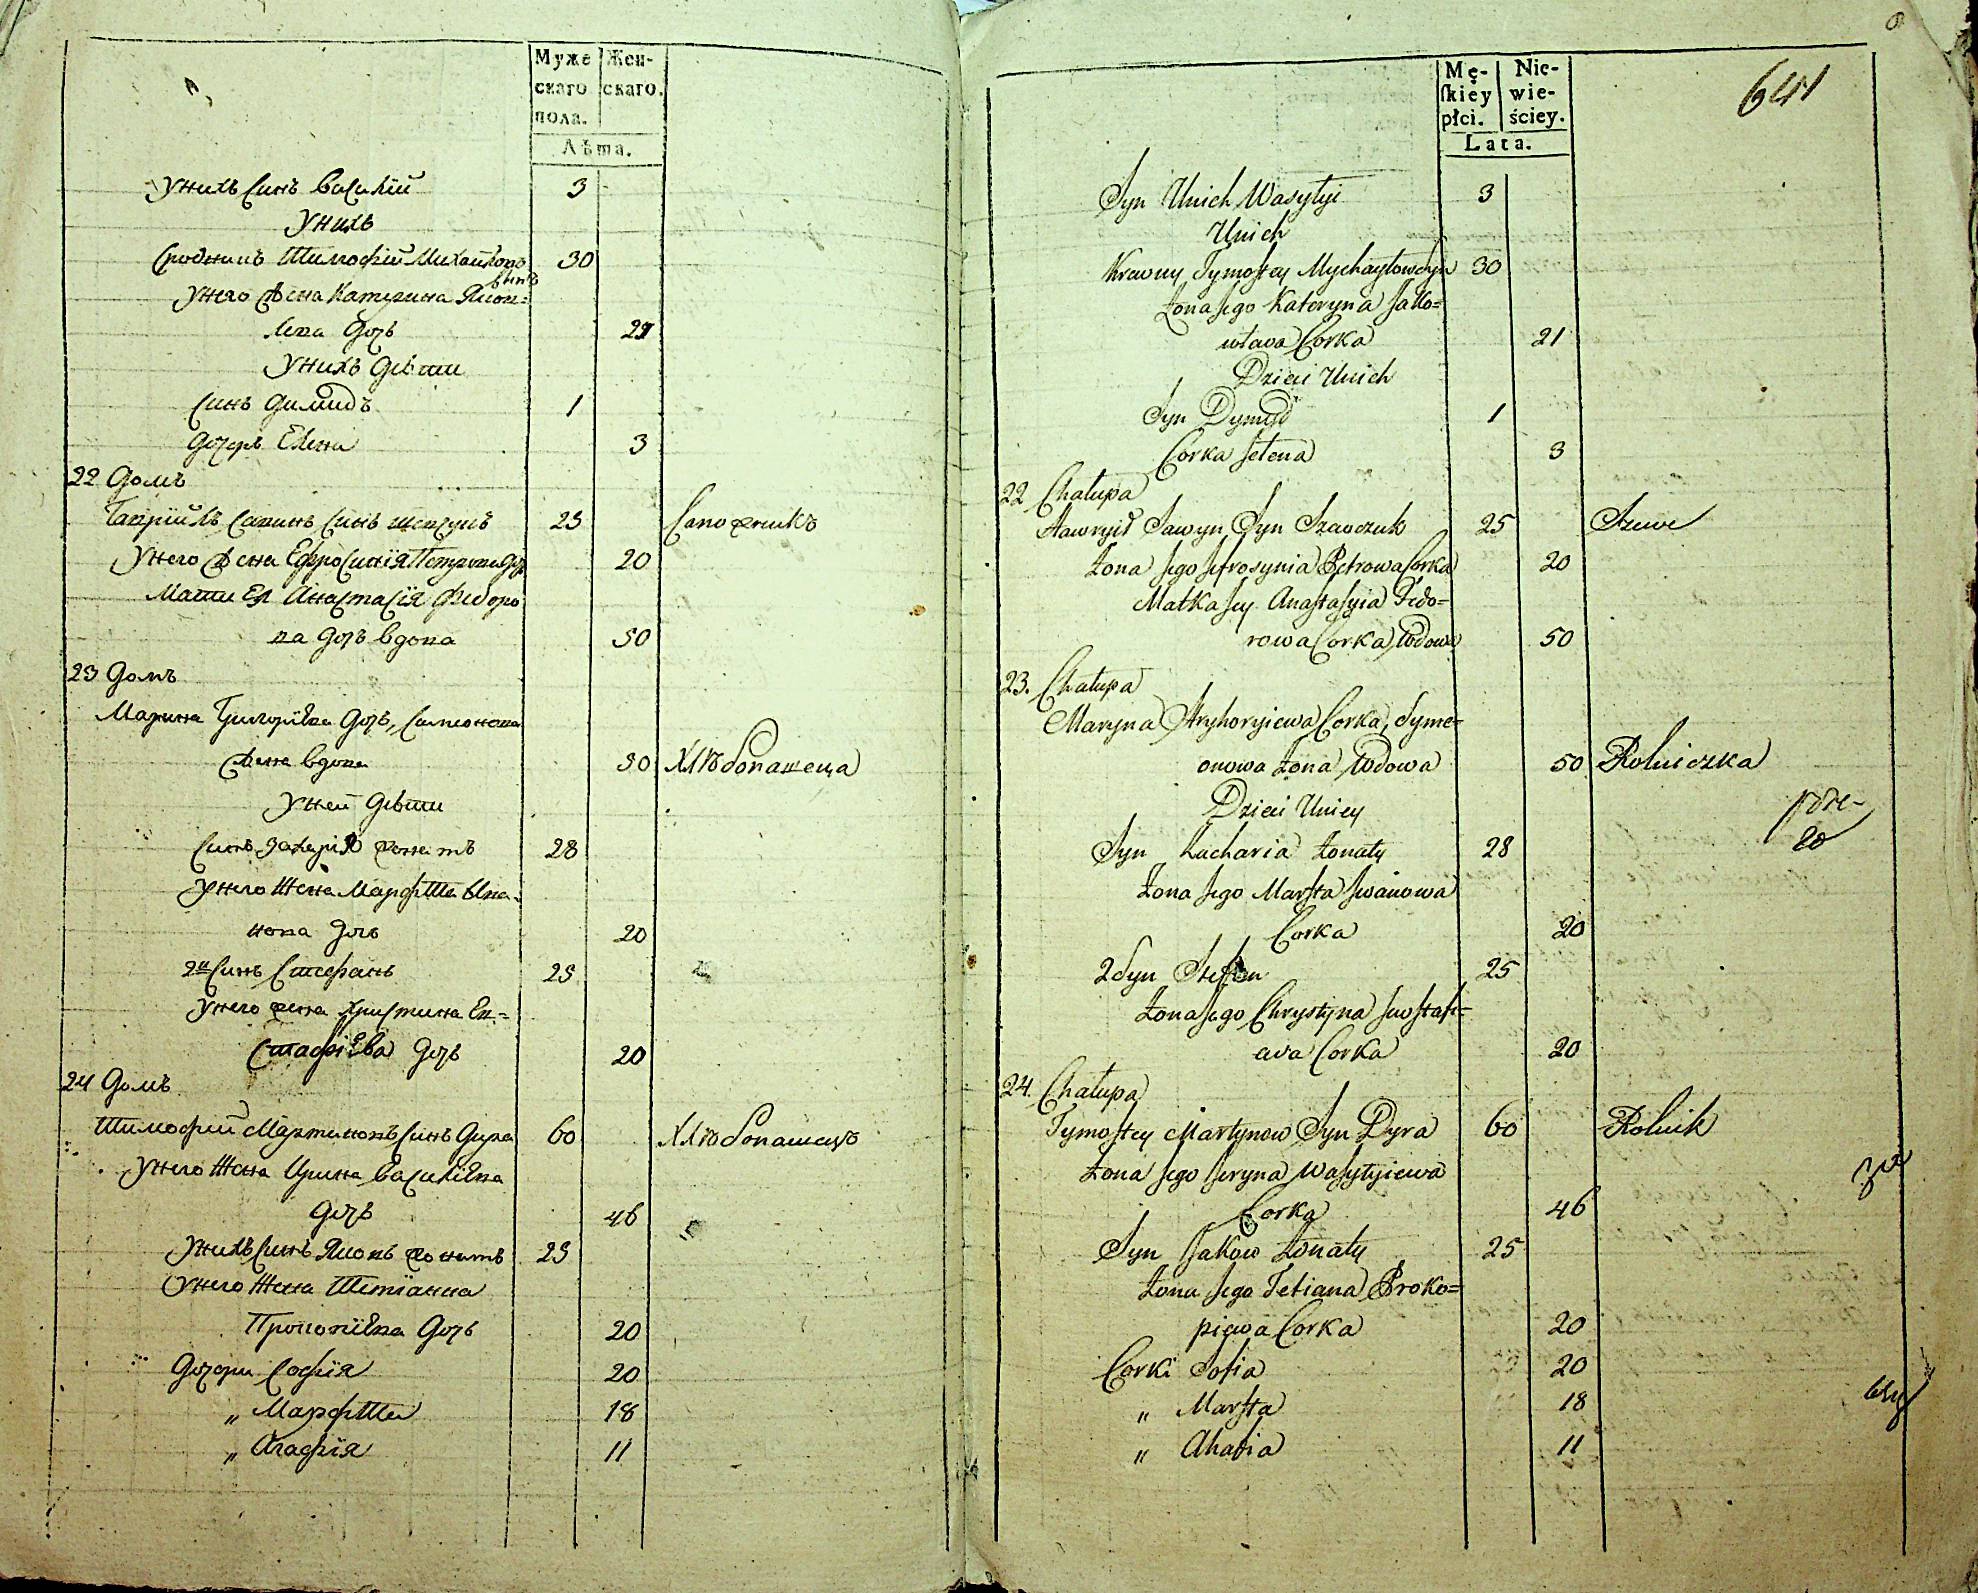 Муже
скаго
пола.
Жен-
скаго.
Лѣта.
Унихъ Синъ Василій 3
Унихъ
Сродникъ Тимофій Михайловъ 30
синъ
Унего Жена Катерина Яков-
лева дочь 21
Унихъ дѣти
Синъ Димидъ 1
дочерь Елена 3
22 Домъ
Гаврійлъ Савинъ Синъ Шевчукъ 25 Сапожникъ
Унего Жена Ефросинія Петрова доч 20
Мати Ея Анастасія Федоро
ва дочь вдова 50
23 Домъ
Марина Григоріева дочь, Симонова
Жена вдова 50 Хлѣбопашеца
Уней дѣти
Синъ Захарія жонатъ 28
Унего Жена Марфта Ива-
нова дочь 20
2й Синъ Стефанъ 25
Унего жена Христина Ев-
Стафіева дочь 20
24 Домъ
Тимофий Мартиновъ Синъ Дира 60 Хлѣбопашецъ
Унего Жена Ирина Василіева
дочь 46
Унихъ Синъ Яковъ жонатъ 25
Унего Жена Тетіанна
Прокопіева дочь 20
Дочери Софія 20
„ Марфта 18
„ Агафія 11
641
Mę-
skiey
płci.
Nie-
wie-
ściey.
Lata.
Syn Unich Wasylyi 3
Unich
Krewny Tymoftey Mychayłow Syn 30
Żona Jego Kateryna Jako-
wława Corka 21
Dzieci Unich
Syn Dymyd 1
Corka Jelena 3
22 Chałupa
Hawryił Sawyn Syn Szawczuk 25 Szewc
Żona Jego Jefrosynia Petrowa Corka 20
Matka Jey Anastasyia Fedo=
rowa Corka Wdowa 50
23. Chałupa
Maryna Hryhoryiewa Corka, Syme=
onowa Żona Wdowa 50 Rolniczka
Dzieci Uniey
Syn Zacharia Żonaty 28
Żona Jego Marfta Jwanowa
Corka 20
2 Syn Stefan 25
Żona Jego Chrystyna Jewstafi=
ewa Corka 20
24. Chałupa
Tymoftey Martynow Syn Dyra 60 Rolnik
Żona Jego Jeryna Wasylyiewa
Corka 46
Syn Jakow Żonaty 25
Żona Jego Tetiana Proko=
piewa Corka 20
Corki Sofia 20
„ Marfta 18
„ Ahafia 11